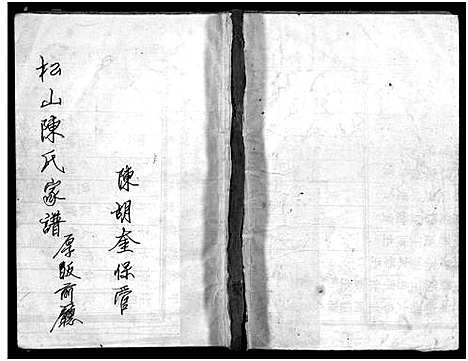 松山陳氏家譜厚版前廳
陳胡奎保管